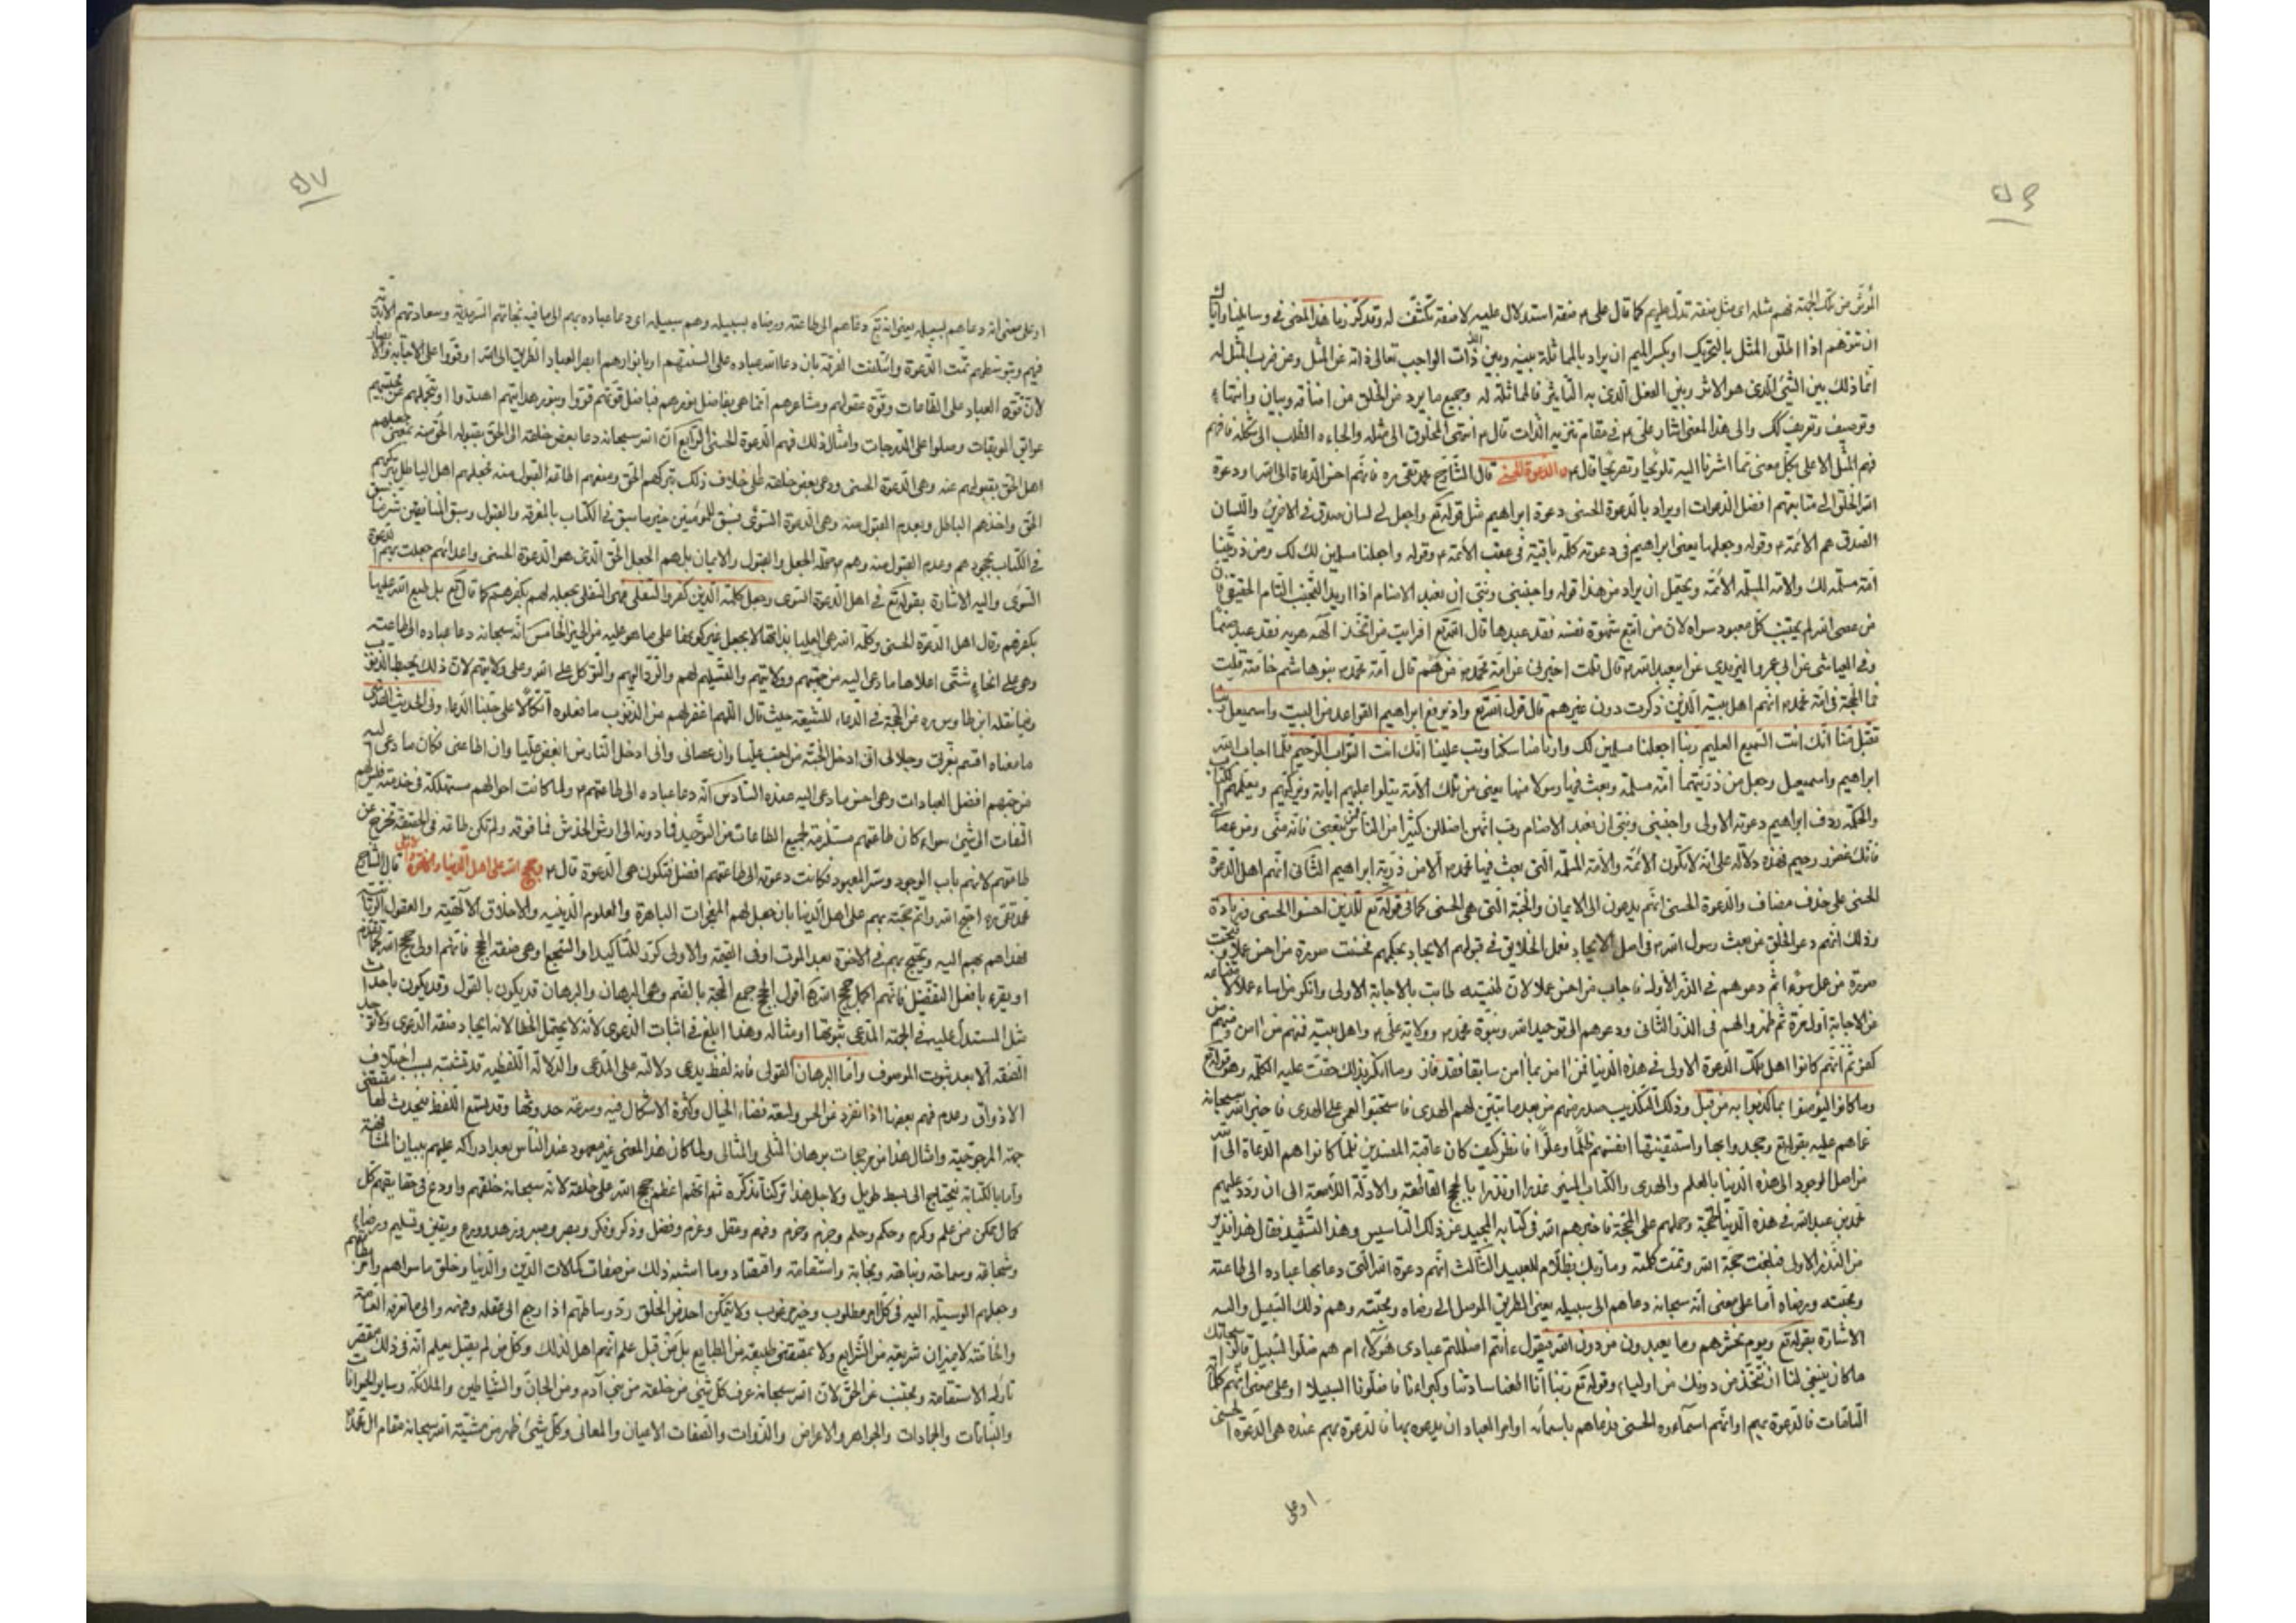 ٥٦
المؤثر من تلك الجهة فهم مثله اى مثل صفة تدل عليهم كما قال على ع صفة استدلال عليه لا صفة تكشف له وقد ذكرنا هذا المعنى فى رسايلنا واياك
ان تتوهم اذا اطلق المثل بالتحريك او بكسر الميم ان يراد بالمماثلة بينه وبين الله ذات الواجب تعالى ذاته عن المثل وعن ضرب المثل له
انما ذلك بين الشئ الذى هو الاثر وبين الفعل الذى به التاثير فالمماثلة له وجميع ما يرد من الخلق من اضافة وبيان وانتهاء
وتوصيف وتعريف كك والى هذا المعنى اشار على ع فى مقام تنزيه الذات قال ع انتهى المخلوق الى مثله والجاءه الطلب الى شكله فافهم
فهم المثل الاعلى بكل معنى مما اشرنا اليه تلويحا وتصريحا قال ع والدعوة الحسنى قال الشارح محمد تقى ره فانهم احسن الدعاة الى الله او دعوة
الله الخلق الى متابعتهم افضل الدعوات او يراد بالدعوة الحسنى دعوة ابراهيم مثل قوله تع واجعل لى لسان صدق فى الاخرين واللسان
الصدق هم الائمة ع وقوله وجعلها يعنى ابراهيم فى دعوته كلمة باقية فى عقب الائمة ع وقوله واجعلنا مسلمين لك ومن ذريتنا
امة مسلمة لك والامة المسلمة الائمة ويحتمل ان يراد من هذا قوله واجنبنى وبنى ان نعبد الاصنام اذا اريد التجنب التام الحقيقى فان
من عصى الله لم يجتنب كل معبود سواه لان من اتبع شهوة نفسه فقد عبدها قال الله تع افرايت من اتخذ الهه هويه فقد عبد صنما
وفى العياشى عن ابى عمرو الزبيرى عن ابيعبد الله ع قال قلت اخبرنى عن امة محمد ص من هم قال امة محمد ص بنوهاشم خاصة قلت
فما الحجة فى امة محمد ص انهم اهل بيته الذين ذكرت دون غيرهم قال قول الله تع واذ يرفع ابراهيم القواعد من البيت واسمعيل ربنا
تقبل منا انك انت السميع العليم ربنا اجعلنا مسلمين لك وارنا مناسكنا وتب علينا انك انت التواب الرحيم فلما اجاب الله
ابراهيم واسمعيل وجعل من ذريتهما امة مسلمة وبعث فيها رسولا منها يعنى من تلك الامة يتلوا عليهم اياته ويزكيهم ويعلمهم الكتاب
والحكمة ردف ابراهيم دعوته الاولى واجنبنى وبنى ان نعبد الاصنام رب انهن اضللن كثيرا من الناس فمن تبعنى فانه منى ومن عصانى
فانك غفور رحيم فهذه دلالة على انه لا تكون الائمة والامة المسلمة التى بعث فيها محمد ص الا من ذرية ابراهيم الثانى انهم اهل الدعوة
الحسنى على حذف مضاف والدعوة الحسنى انهم يدعون الى الايمان والجنة التى هى الحسنى كما فى قوله تع للذين احسنوا الحسنى وزيادة
وذلك انهم دعوا الخلق من بعث رسول الله ص فى اصل الايجاد فعل الخلايق فى قبولهم الايجاد بحكمهم فحسنت صورة من احسن عملا وقبحت
صورة من عمل سوء ثم دعوهم فى الذر الاول فاجاب من احسن عملا لان طينته طابت بالاجابة الاولى وانكر من اساء عملا لامتناعه
من الاجابة اول مرة ثم ظهروا لهم فى الذر الثانى ودعوهم الى توحيد الله ونبوة محمد ص وولاية على ع واهل بيته فمنهم من امن ومنهم من
كفر ثم انهم كانوا اهل تلك الدعوة الاولى فى هذه الدنيا فمن امن بما امن سابقا فقد فاز وما انكر بذلك حقت عليه الكلمة وهو قوله تع
وما كانوا ليؤمنوا بما كذبوا به من قبل وذلك التكذيب صدر منهم من بعد ما تبين لهم الهدى فاستحبوا العمى على الهدى فاخبر الله سبحانه
عما هم عليه بقوله تع وجحدوا بها واستيقنتها انفسهم ظلما وعلوا فانظر كيف كان عاقبة المفسدين فلما كانوا هم الدعاة الى الله
من اصل الوجود الى هذه الدنيا بالعلم والهدى والكتاب المنير عذرا او نذرا بالحجج القاطعة والادلة اللامعة الى ان ردد عليهم
محمد بن عبد الله فى هذه الدنيا الحجة وحملهم على المحجة فاخبرهم الله فى كتابه المجيد عن ذلك التاسيس وهذا التشييد فقال هذا نذير
من النذر الاولى فبلغت حجة الله وتمت كلمته وما ربك بظلام للعبيد الثالث انهم دعوة الله التى دعا بها عباده الى طاعته
ومحبته ورضاه اما على معنى انه سبحانه دعاهم الى سبيله يعنى الطريق الموصل الى رضاه ومحبته وهم ذلك السبيل واليه
الاشارة بقوله تع ويوم نحشرهم وما يعبدون من دون الله فيقول ءانتم اضللتم عبادى هؤلاء ام هم ضلوا السبيل قالوا سبحانك
ما كان ينبغى لنا ان نتخذ من دونك من اولياء وقوله تع ربنا انا اطعنا سادتنا وكبراءنا فاضلونا السبيلا او على معنى انهم كلمة
التامات فالدعوة بهم او انهم اسماءه الحسنى فدعاهم باسمائه او امر العباد ان يدعوه بها فالدعوة بهم عنده هى الدعوة الحسنى
او على
٥٧
او على معنى انه دعاهم لسبيله يعنى انه تع دعاهم الى طاعته ورضاه بسبيله وهم سبيله اى دعا عباده بهم الى ما فيه نجاتهم السرمدية وسعادتهم الابدية
فبهم وبتوسطهم تمت الدعوة وائتلفت الفرقة بان دعا الله عباده على السنتهم او بانوارهم ابصر العباد الطريق الى الله او قووا على الاجابة والابصار
لان قوة العباد على الطاعات وقوة عقولهم ومشاعرهم انما هى بفاضل نورهم فبفاضل قوتهم قووا وبنور هدايتهم اهتدوا او بتحملهم عن محبيهم
عوائق الموبقات وصلوا على الدرجات وامثال ذلك فهم الدعوة الحسنى الرابع ان الله سبحانه دعا بعض خلقه الى الحق بقبوله الحق منه بمعنى جعلهم
اهل الحق بقبولهم عنه وهى الدعوة الحسنى ودعى بعض خلقه على خلاف ذلك بتركهم الحق ومنعهم الطافه القبول منه فجعلهم اهل الباطل بتركهم
الحق واخذهم الباطل وبعدم القبول منه وهى الدعوة السوءى فسبق للمؤمنين خير ما سبق فى الكتاب بالمعرفة والقبول وسبق للمنافقين شر ما سبق
فى الكتاب بجحودهم وعدم القبول منه وهم ع محل الجعل والقبول والايمان بل هم الجعل الحق الذى هو الدعوة الحسنى واعدائهم جعلت بهم الدعوة
السوءى واليه الاشارة بقوله تع فى اهل الدعوة السوءى وجعل كلمة الذين كفروا السفلى فهى السفلى بجعله لهم بكفرهم كما قال تع بل طبع الله عليها
بكفرهم وقال اهل الدعوة الحسنى وكلمة الله هى العليا بذاتها لا بجعل غير كونها على ما هو عليه من الخير الخامس انه سبحانه دعا عباده الى طاعته
وهى على انحاء شتى اعلاها ما دعى اليه من حبهم وولايتهم والتسليم لهم والرد اليهم والتوكل على الله وعلى ولايتهم لان ذلك يحبط الذنوب
وفيما نقله ابن طاوس ره عن الحجة فى الدعاء للشيعة حيث قال اللهم اغفر لهم من الذنوب ما فعلوه اتكالا على حبنا الدعاء وفى الحديث القدسى
ما معناه اقسم بعزتى وجلالى انى ادخل الجنة من احب عليا وان عصانى وانى ادخل النار من ابغض عليا وان اطاعنى فكان ما دعى اليه
من حبهم افضل العبادات وهى احسن ما دعى اليه عنده السادس انه دعا عباده الى طاعتهم ع ولما كانت احوالهم مستهلكة فى خدمته فليس لهم
التفات الى شئ سواه كان طاعتهم مستلزمة لجميع الطاعات من التوحيد فما دونه الى ارش الخدش فما فوقه ولم تكن طاعة فى الحقيقة تخرج عن
طاعتهم لانهم باب الوجود وستر المعبود فكانت دعوته الى طاعتهم افضل فتكون هى الدعوة قال ع وحجج الله على اهل الدنيا والاخرة والاولى قال الشارح
محمد تقى ره احتج الله واتم حجته بهم على اهل الدنيا بان جعل لهم المعجزات الباهرة والعلوم الدينيه والاخلاق الالهية والعقول الربانية
فهداهم بهم اليه ويحتج بهم فى الاخرة بعد الموت او فى القيمة والاولى كرر للتاكيد او السجع او هى صفة الحجج فانهم اولى حجج الله كما تقدم
او يقرء بافعل التفضيل فانهم اكمل حجج الله ه‍ اقول الحجج جمع الحجة بالضم وهى البرهان والبرهان قد يكون بالقول وقد يكون باحداث
مثل المستدل عليه فى الجهة المدعى ثبوتها او مثاله وهذا ابلغ فى اثبات الدعوى لانه لا يحتمل الخطا لانه ايجاد صفة الدعوى ولا توجد
الصفة الا بعد ثبوت الموصوف واما البرهان القولى فانه لفظ يدعى دلالته على المدعى والدلالة اللفظية قد تشتبه بسبب اختلاف
الاذواق وعدم فهم بعضها اذا تفرد عن الحس ولسعة فضاء الخيال وكثرة الاشكال فيه وسرعة حدوثها وقد يسمع اللفظ فيحدث لها مقتضى
جهة المرجوحية وامثال هذا من مرجحات برهان المثلى والمثالى ولما كان هذا المعنى غير معهود عند الناس بعد ادراكه عليهم ببيان المشافهة
واما بالكتابة فيحتاج الى بسط طويل ولاجل هذا تركنا تذكره ثم انهم اعظم حجج الله على خلقه لانه سبحانه خلقهم واودع فى حقايقهم كل
كمال ممكن من علم وكرم وحكم وحلم وجزم وحزم وفهم وعقل وعزم وفضل وذكر وفكر وبصر وصبر وزهد وورع ويقين وتسليم ورضاء
وشجاعة وسماحة ونباهة ونجابة واستقامة واقتصاد وما اشبه ذلك من صفات كمالات الدين والدنيا وخلق ماسواهم وامر بطاعتهم
وجعلهم الوسيلة اليه فى كل امر مطلوب وخير مرغوب ولا يتمكن احد من الخلق رد وساطتهم اذا رجع الى عقله وفهمه والى ما تعرفه العامة
والخاصة لا بميزان شريعة من الشرايع ولا بمقتضى طبيعة من الطبايع بل من قبل علم انهم اهل لذلك وكل من لم يقبل يعلم انه فى ذلك مقصر
تارك الاستقامة ومجتنب عن الحق لان الله سبحانه عرف كل شئ من خلقه من بنى آدم ومن الجان والشياطين والملائكة وساير الحيوانات
والنباتات والجمادات والجواهر والاعراض والذوات والصفات الاعيان والمعانى وكل شئ ظهر من مشية الله سبحانه مقام ال محمد